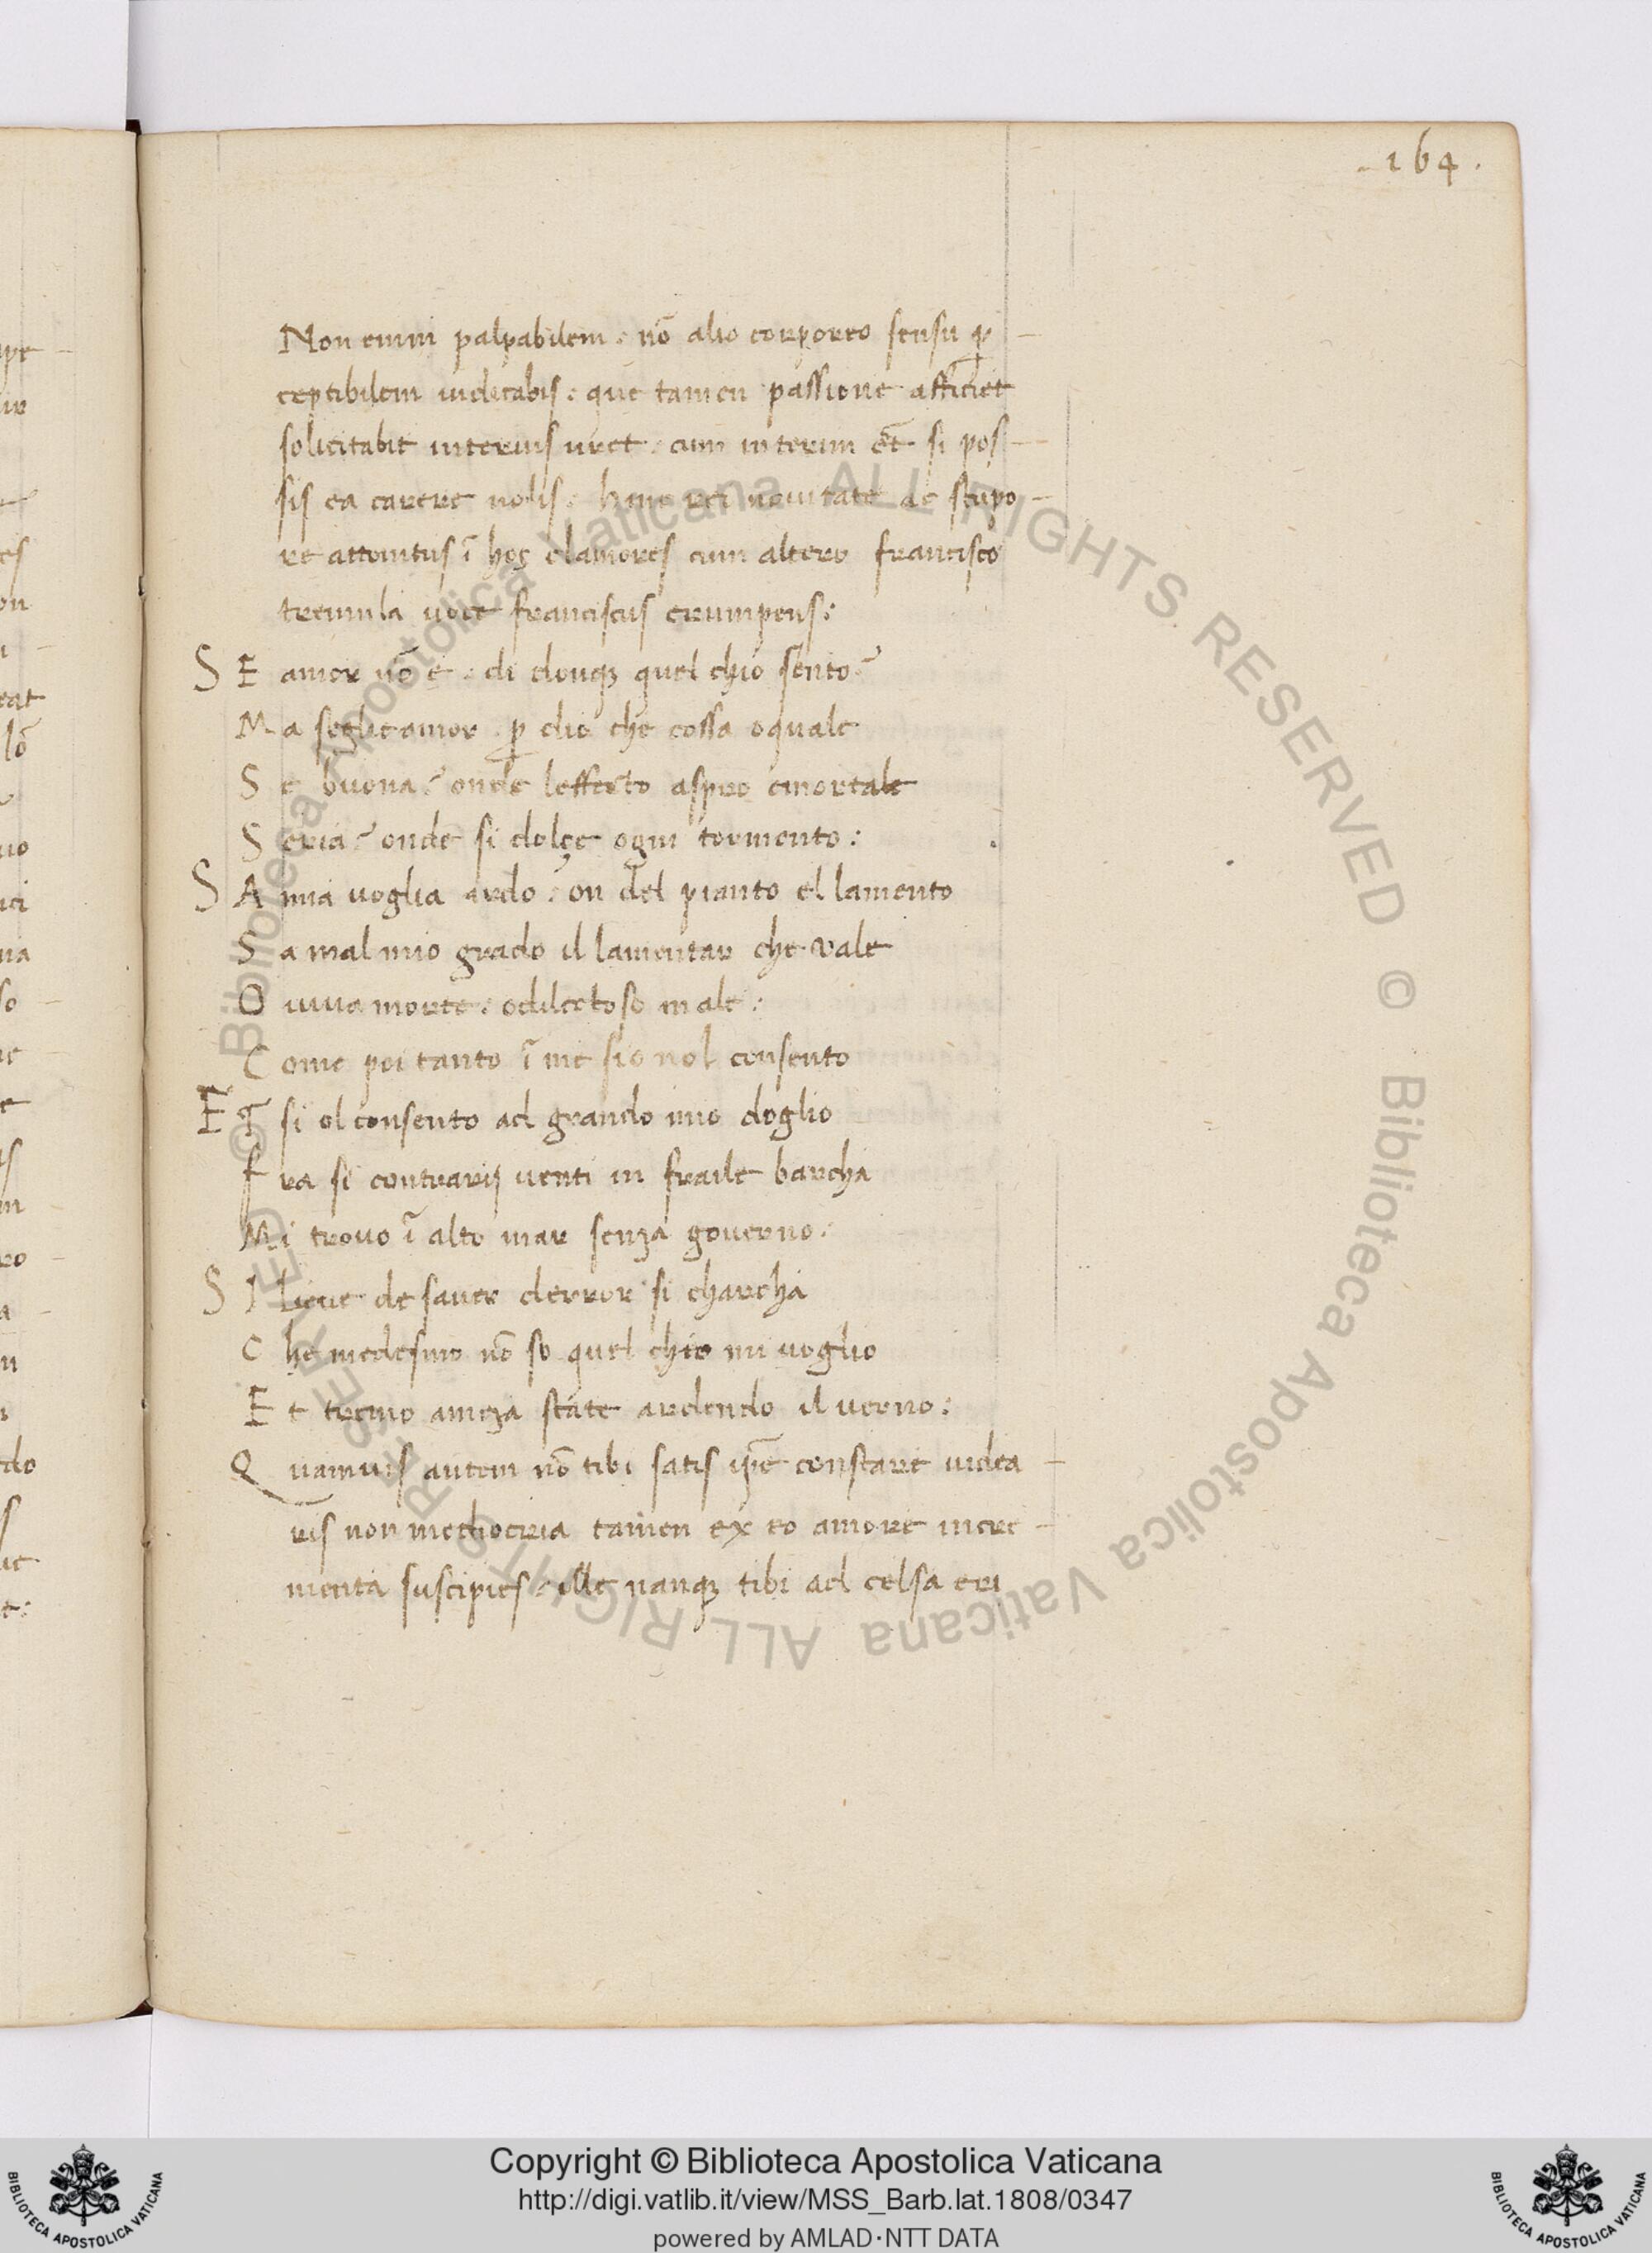 .164.
Non enim palpabilem: nō alio corporeo sensu ꝑ
ceptibilem iudicabis: que tamen passione afficiet
solicitabit internis uret. cum interim ēt si pos
sis ea carere nolis: hinc rei nouitate ac stupo
re attonitus ī hos clamores cum altero francisco
tremula uoce franciscus erumpens:
SE amor nō e: di donqȝ quel chio sento?
Ma seglie amor ꝑ dio che cossa o quale
Se buona? onde leffecto aspro emortale
Seria? onde si dolçe ogni tormento:
SA mia uoglia ardo: on del pianto el lamento
Sa mal mio grado il lamentar che vale
O uiua morte: odilectoso male:
Come poi tanto ī me sio nol consento
ET si ol consento ad grando mio doglio
fra si contrarij uenti in fraile barcha
Mi trouo ī alto mar senza gouerno:
SI lieue de sauer derror si charcha
Che medesmo nō so quel chio mi uoglio
Et tremo ameza state ardendo il uerno:
Quamuis autem nō tibi satis ip̄e constare uidea
ris non mediocria tamen ex eo amore incre
menta suscipies: ille nanqȝ tibi ad celsa eri
© Biblioteca Apostolica Vaticana ALL RIGHTS RESERVED © Biblioteca Apostolica Vaticana ALL RIGHTS RESERVED
Copyright © Biblioteca Apostolica Vaticana
http://digi.vatlib.it/view/MSS_Barb.lat.1808/0347
powered by AMLAD·NTT DATA
BIBLIOTECA APOSTOLICA VATICANA
BIBLIOTECA APOSTOLICA VATICANA